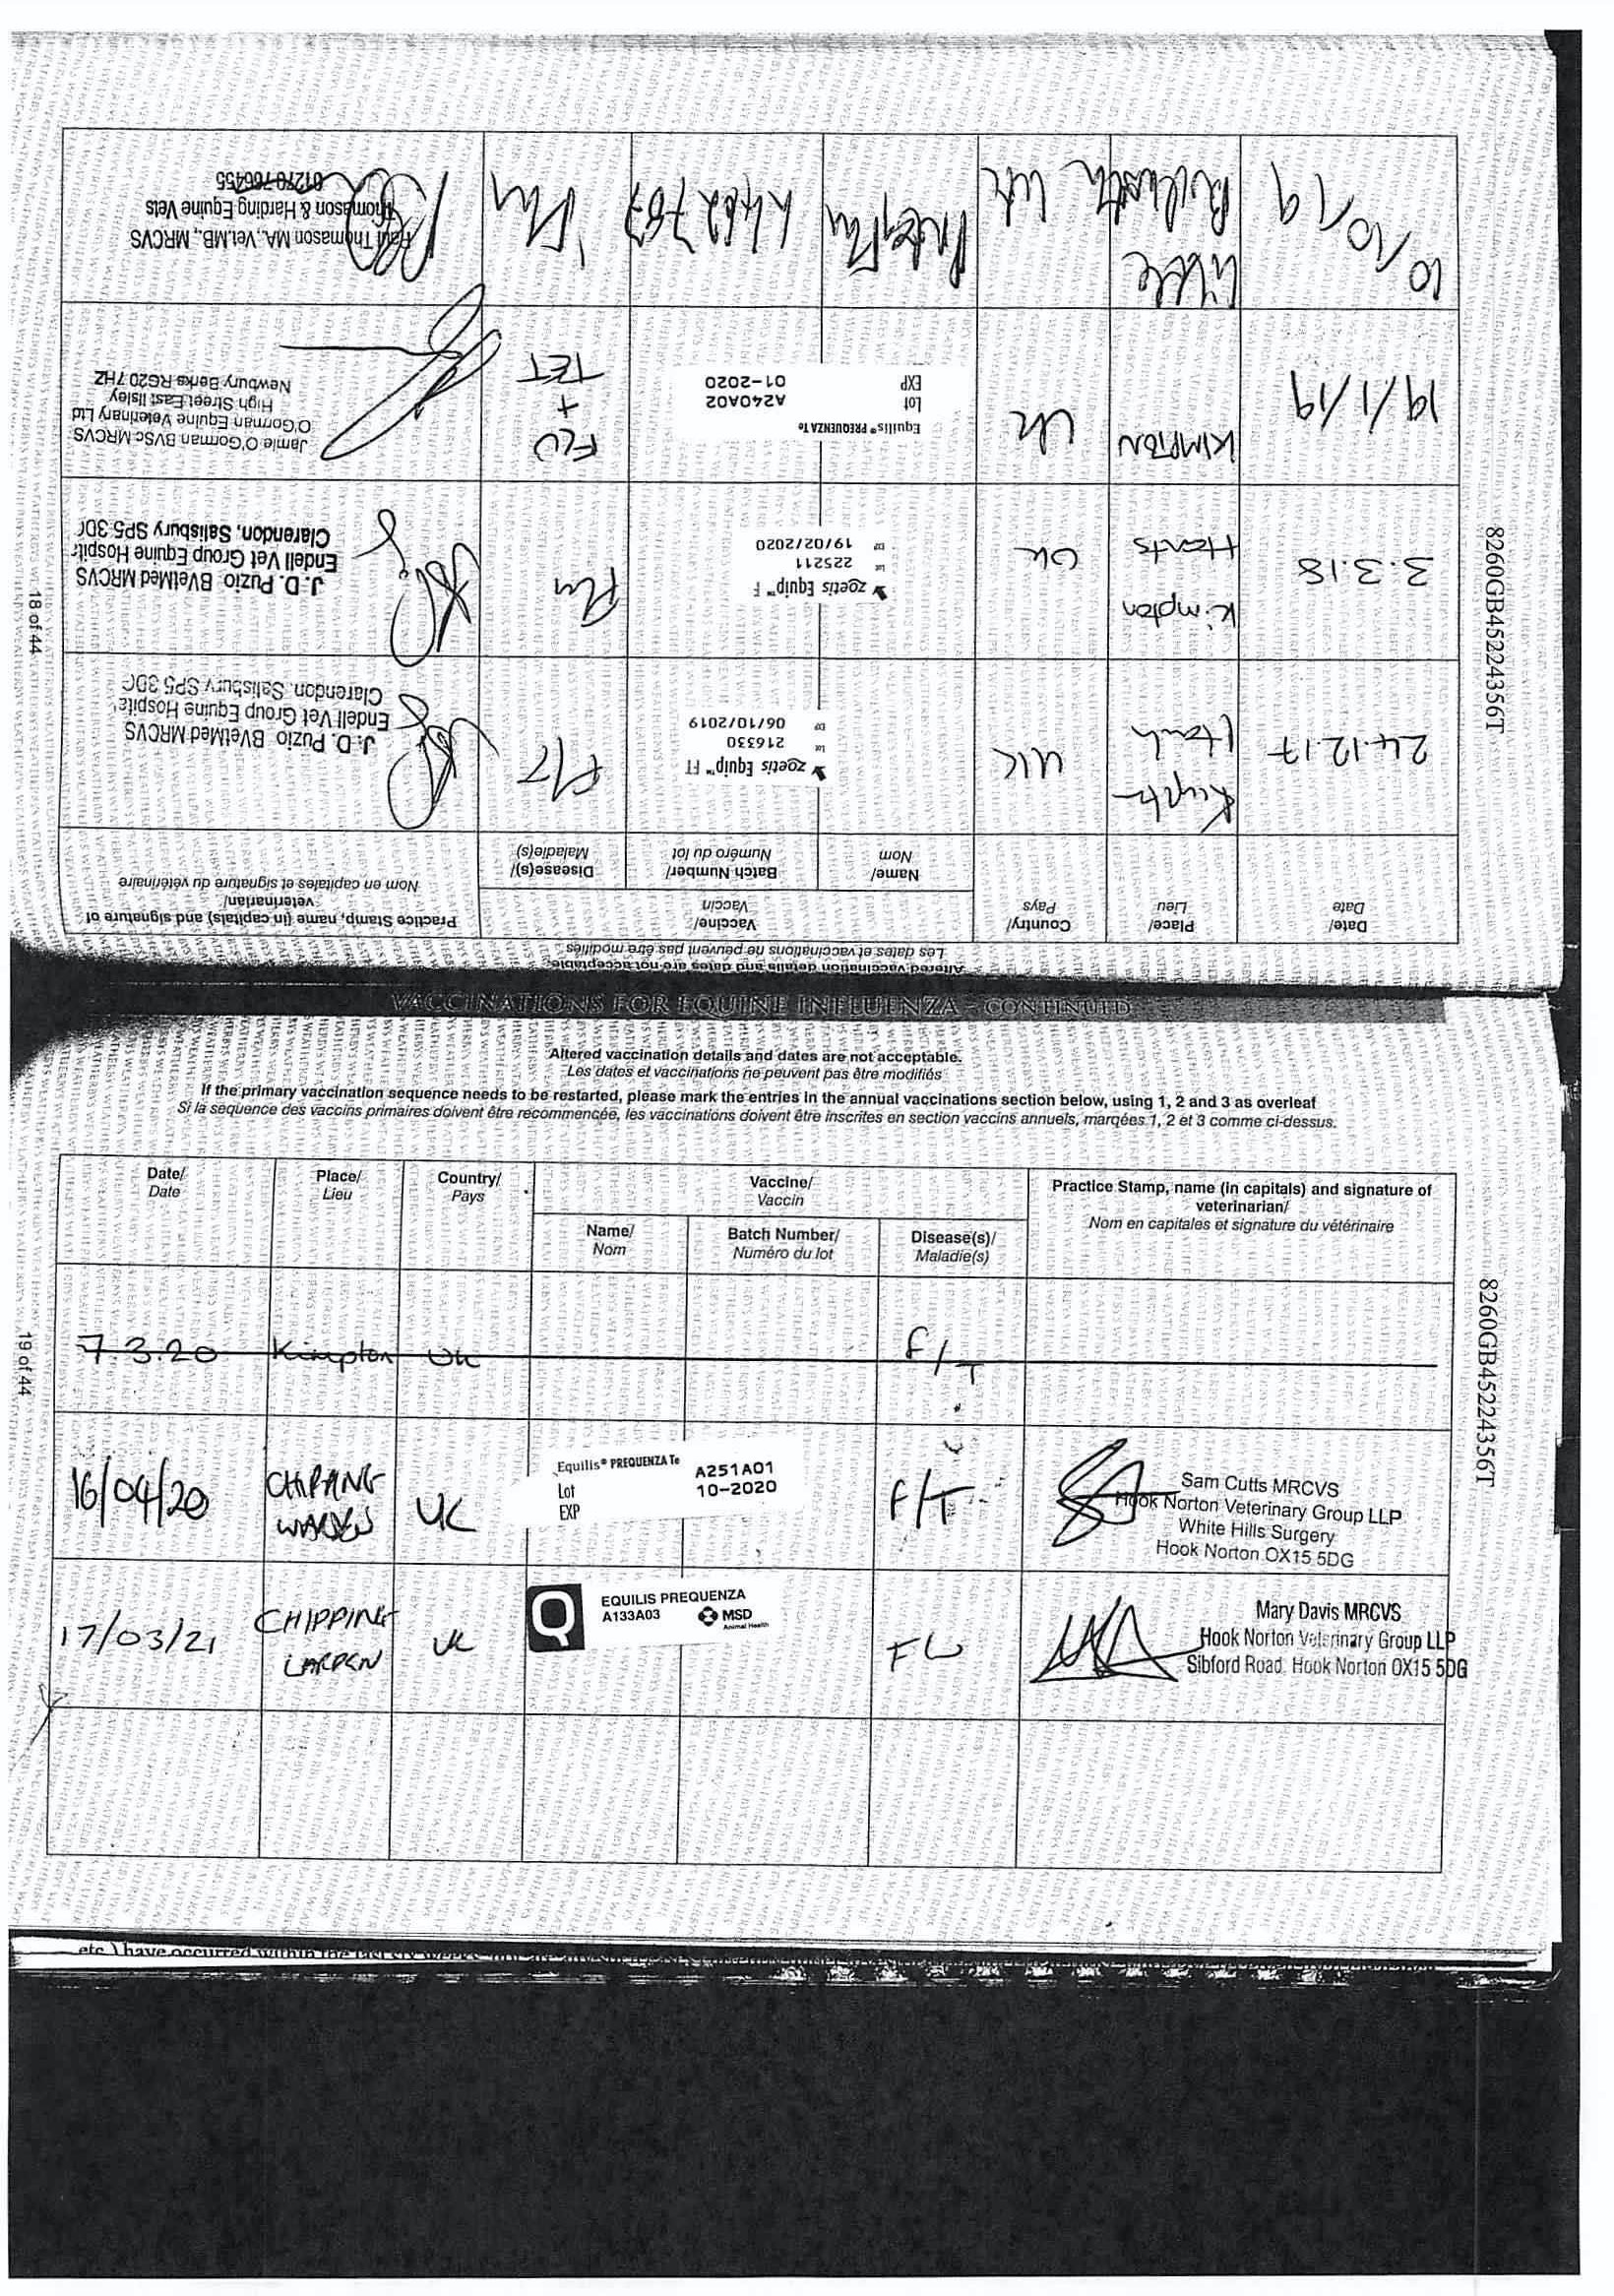 Altered vaccination details and dates are not acceptable.
Les dates et vaccinations ne peuvent pas être modifiés
Date/
Date
Place/
Lieu
Country/
Pays
Vaccine/
Vaccin
Name/
Nom
Batch Number/
Numéro du lot
Disease(s)/
Maladie(s)
Practice Stamp, name (in capitals) and signature of
veterinarian/
Nom en capitales et signature du vétérinaire
24.12.17
UK
zoetis Equip™ FT
Lot 216330
EXP 06/10/2019
F/T
J. D. Puzio BVetMed MRCVS
Endell Vet Group Equine Hospit
Clarendon. Salisbury SP5 3DC
3.3.18
Kimpton
Hants
UK
zoetis Equip™ F
Lot 225211
EXP 19/02/2020
Flu
J. D. Puzio BVetMed MRCVS
Endell Vet Group Equine Hospit
Clarendon. Salisbury SP5 3DC
19/1/19
KIMPTON
UK
Equilis® PREQUENZA Te
Lot A240A02
EXP 01-2020
FLU
+
TET
Jamie O'Gorman BVSc MRCVS
O'Gorman Equine Veterinary Ltd
High Street East Ilsley
Newbury Berks RG20 7HZ
10/10/19
UK
Flu
Paul Thomason MA., Vet.MB., MRCVS
Thomason & Harding Equine Vets
01270 766455
18 of 44
8260GB45224356T
VACCINATIONS FOR EQUINE INFLUENZA - CONTINUED
Altered vaccination details and dates are not acceptable.
Les dates et vaccinations ne peuvent pas être modifiés
If the primary vaccination sequence needs to be restarted, please mark the entries in the annual vaccinations section below, using 1, 2 and 3 as overleaf
Si la sequence des vaccins primaires doivent être recommencée, les vaccinations doivent être inscrites en section vaccins annuels, marqées 1, 2 et 3 comme ci-dessus.
Date/
Date
Place/
Lieu
Country/
Pays
Vaccine/
Vaccin
Name/
Nom
Batch Number/
Numéro du lot
Disease(s)/
Maladie(s)
Practice Stamp, name (in capitals) and signature of
veterinarian/
Nom en capitales et signature du vétérinaire
7.3.20 Kimpton UK F/T
16/04/20
UK
Equilis® PREQUENZA Te
Lot A251A01
EXP 10-2020
F/T
Sam Cutts MRCVS
Hook Norton Veterinary Group LLP
White Hills Surgery
Hook Norton OX15 5DG
17/03/21
CHIPPING
UK
Q
EQUILIS PREQUENZA
A133A03 MSD
Animal Health
FLU
Mary Davis MRCVS
Hook Norton Veterinary Group LLP
Sibford Road, Hook Norton OX15 5DG
19 of 44
8260GB45224356T